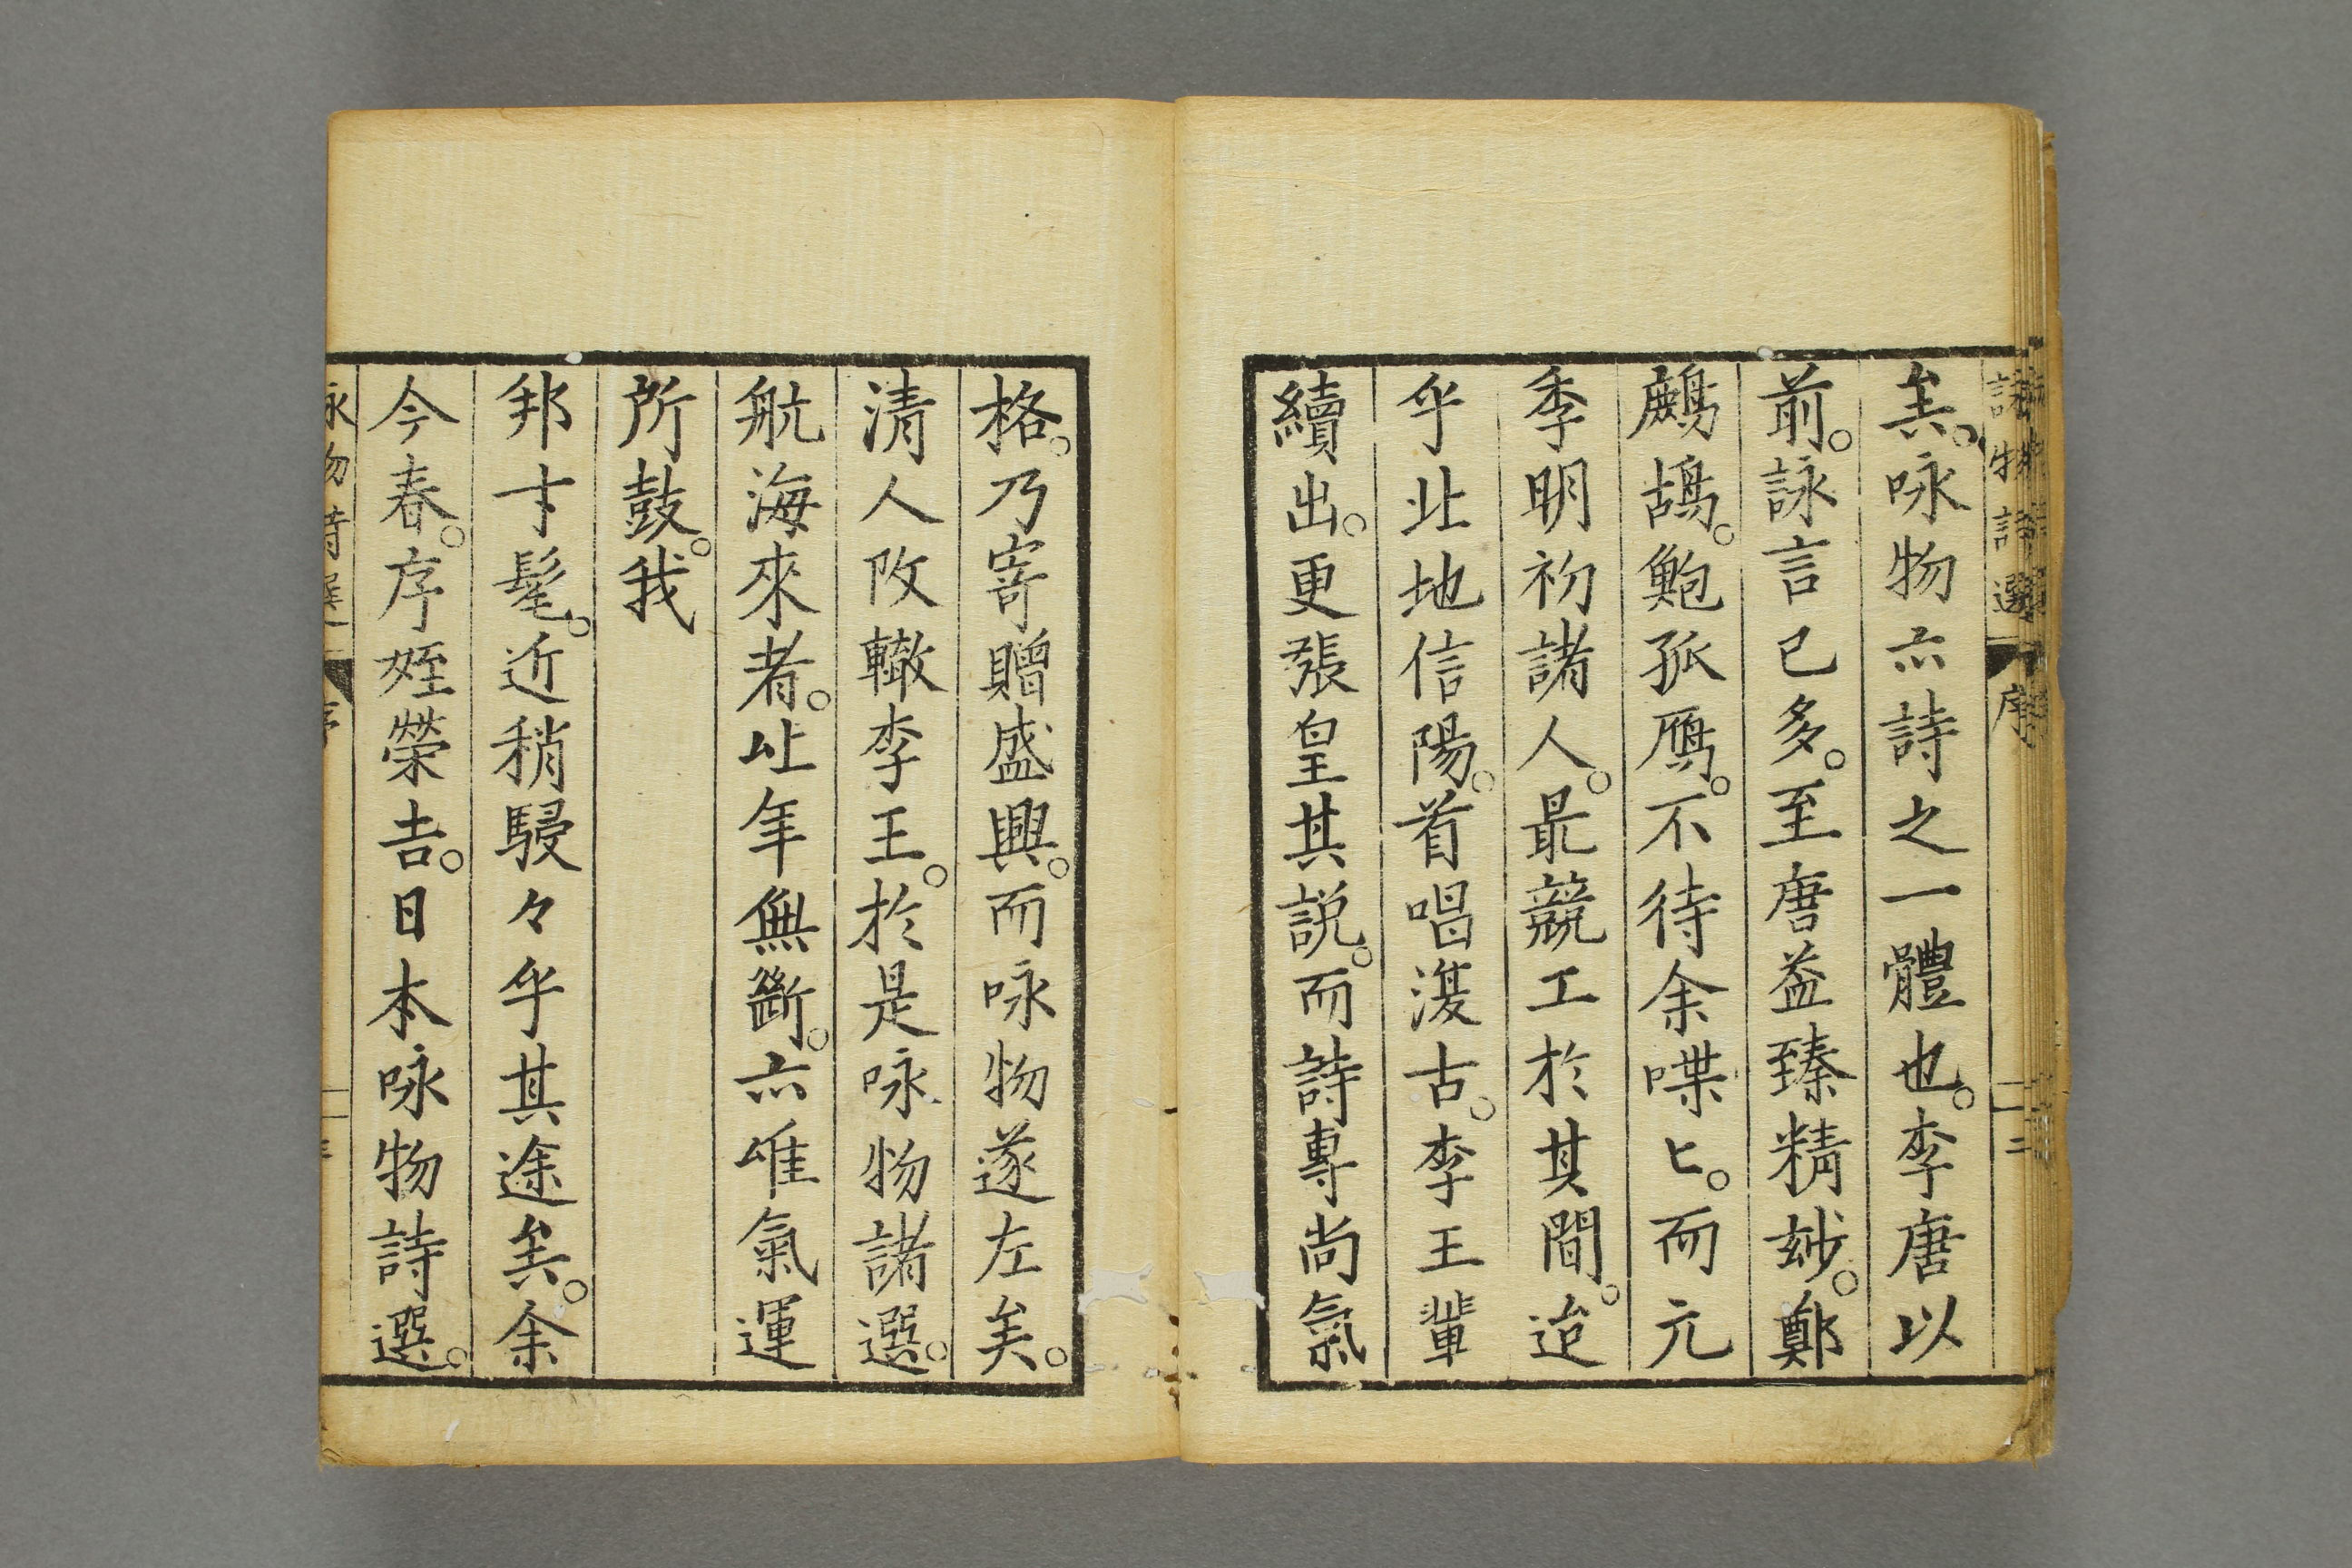 矣。咏物亦詩之一體也。李唐以
前。詠言已多。至唐益臻精妙。鄭
鷓鴣。鮑孤鴈。不待余喋〻。而元
季明初諸人。最競工於其間。迨
乎北地信陽。首唱復古。李王輩
續出。更張皇其説。而詩專尚氣
格。乃寄贈盛興。而咏物遂左矣。
清人改轍李王。於是咏物諸選。
航海來者。比年無斷。亦唯氣運
所鼓。我
邦才髦。近稍駸々乎其途矣。余
今春。序姪榮吉。日本咏物詩選。
詠物詩選 序 二
咏物詩選 序